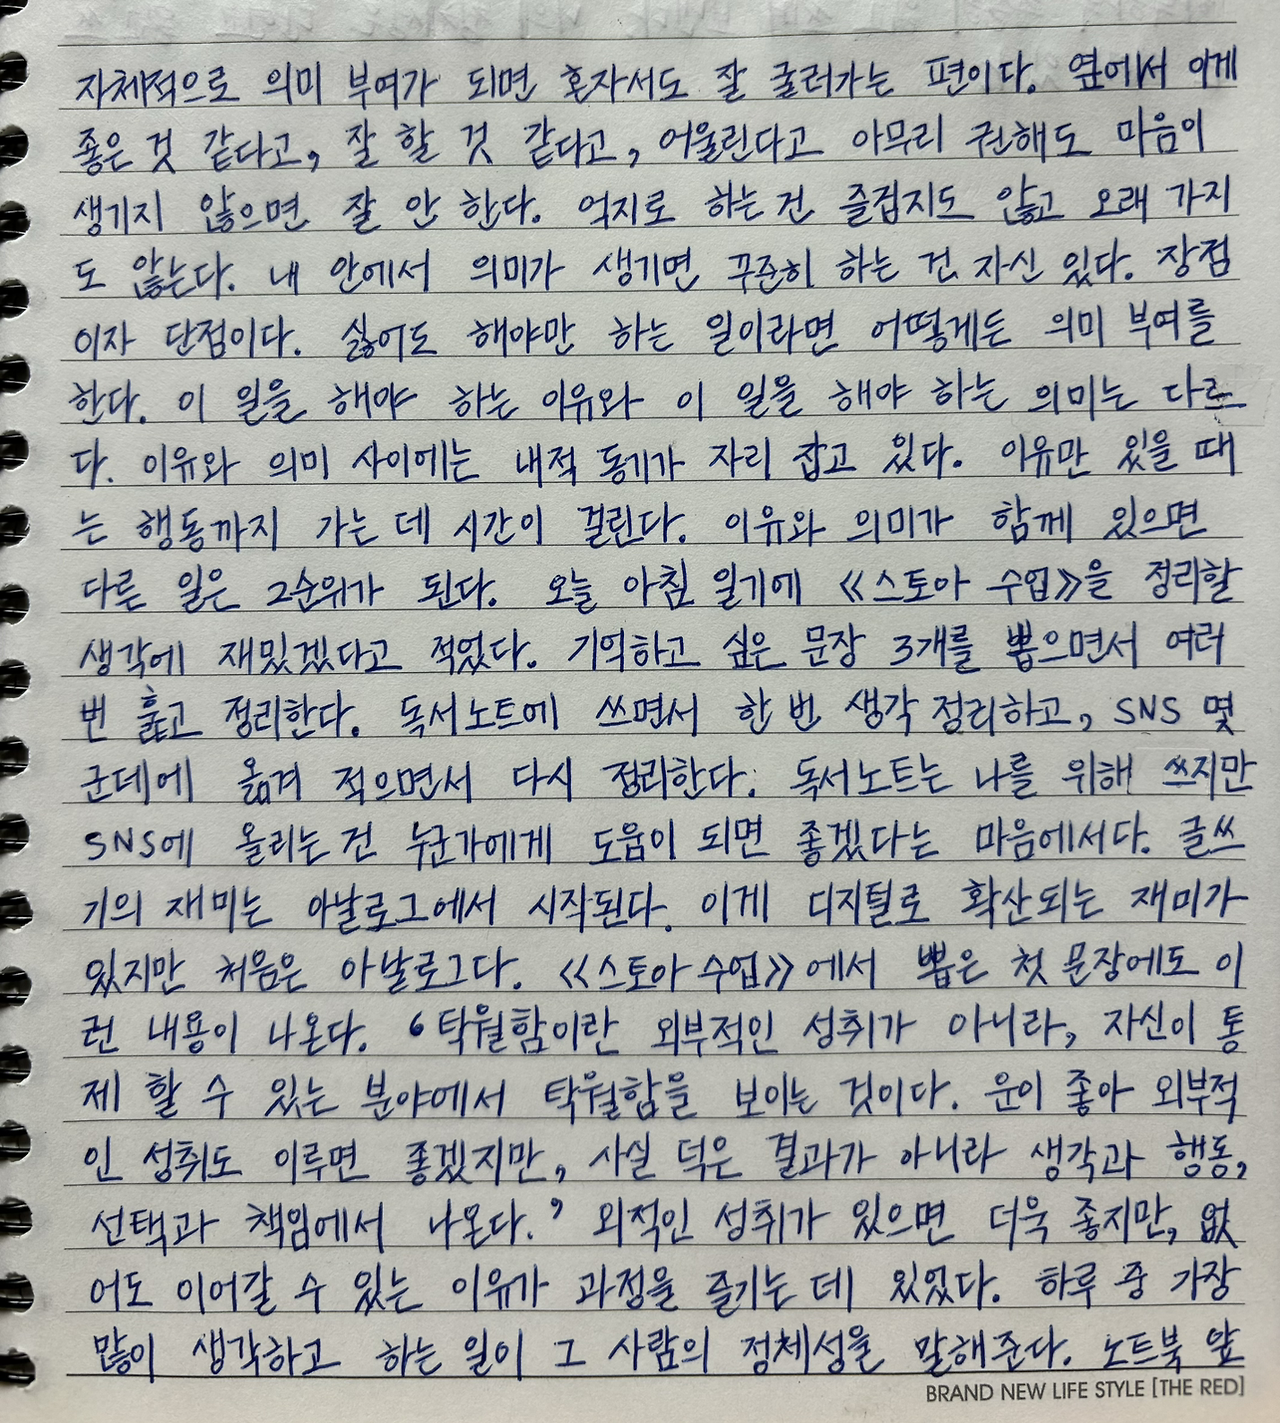 자체적으로 의미 부여가 되면 혼자서도 잘 굴러가는 편이다. 옆에서 이게
좋은 것 같다고, 잘 할 것 같다고, 어울린다고 아무리 권해도 마음이
생기지 않으면 잘 안 한다. 억지로 하는 건 즐겁지도 않고 오래 가지
도 않는다. 내 안에서 의미가 생기면 꾸준히 하는 건 자신 있다. 장점
이자 단점이다. 싫어도 해야만 하는 일이라면 어떻게든 의미 부여를
한다. 이 일을 해야 하는 이유와 이 일을 해야 하는 의미는 다르
다. 이유와 의미 사이에는 내적 동기가 자리 잡고 있다. 이유만 있을 때
는 행동까지 가는 데 시간이 걸린다. 이유와 의미가 함께 있으면
다른 일은 2순위가 된다. 오늘 아침 일기에 《스토아 수업》을 정리할
생각에 재밌겠다고 적었다. 기억하고 싶은 문장 3개를 뽑으면서 여러
번 훑고 정리한다. 독서노트에 쓰면서 한 번 생각 정리하고, SNS 몇
군데에 옮겨 적으면서 다시 정리한다. 독서노트는 나를 위해 쓰지만
SNS에 올리는 건 누군가에게 도움이 되면 좋겠다는 마음에서다. 글쓰
기의 재미는 아날로그에서 시작된다. 이게 디지털로 확산되는 재미가
있지만 처음은 아날로그다. 《스토아 수업》에서 뽑은 첫 문장에도 이
런 내용이 나온다. ‘탁월함이란 외부적인 성취가 아니라, 자신이 통
제 할 수 있는 분야에서 탁월함을 보이는 것이다. 운이 좋아 외부적
인 성취도 이루면 좋겠지만, 사실 덕은 결과가 아니라 생각과 행동,
선택과 책임에서 나온다.’ 외적인 성취가 있으면 더욱 좋지만, 없
어도 이어갈 수 있는 이유가 과정을 즐기는 데 있었다. 하루 중 가장
많이 생각하고 하는 일이 그 사람의 정체성을 말해준다. 노트북 앞
BRAND NEW LIFE STYLE [THE RED]